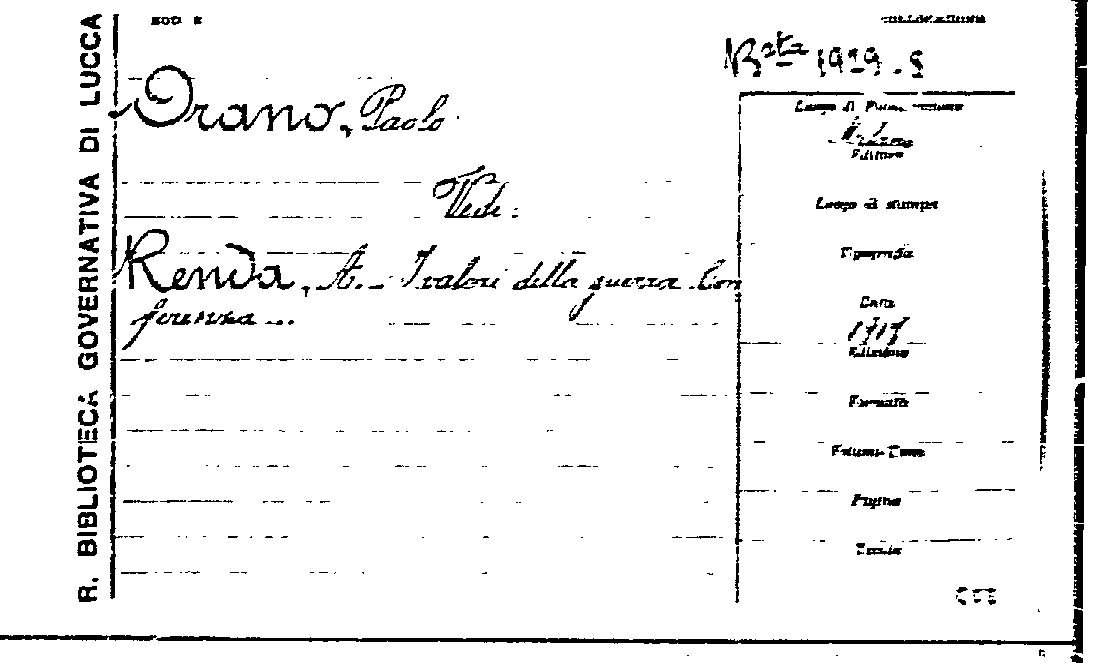 R. BIBLIOTECA GOVERNATIVA DI LUCCA
MOD
COLLOCAZIONE
Bsta 1929.5
Orano, Paolo
Vedi:
Renda, A. - I valori della guerra. Con
ferenza...
Luogo di
Milano
Editore
Luogo di stampa
Tipografia
Data
1917
Edizione
Formato
Volumi-Tomi
Pagine
Tavole